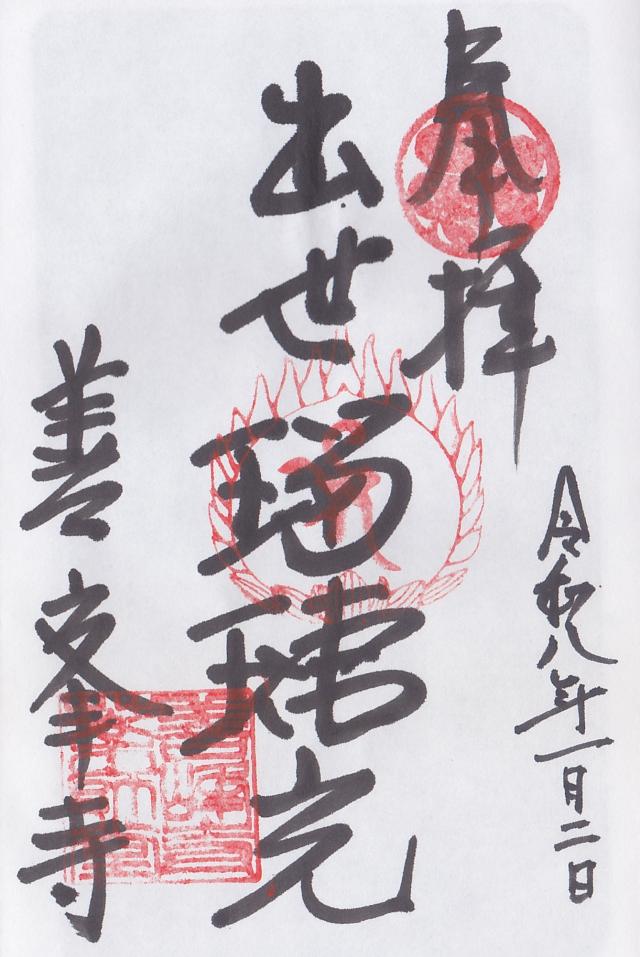 奉拝
令和八年一月二日
出世瑠璃光
善峯寺